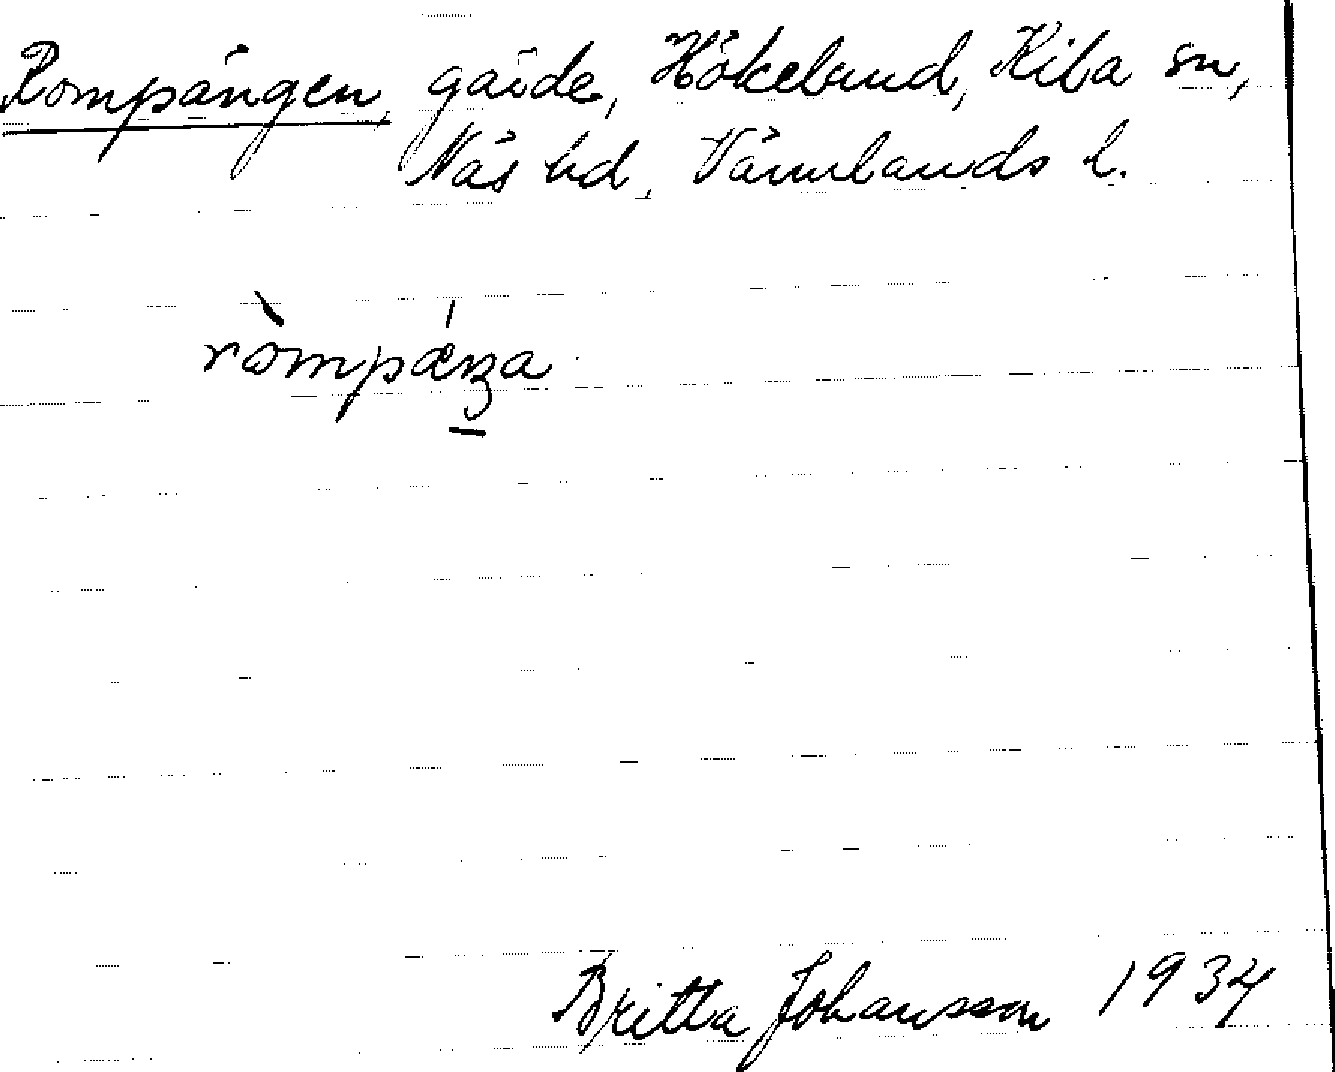 Rompängen, gärde, Hökelund, Kila sn,
Näs hd, Värmlands l.
ròmpǽŋa
Britta Johansson 1934